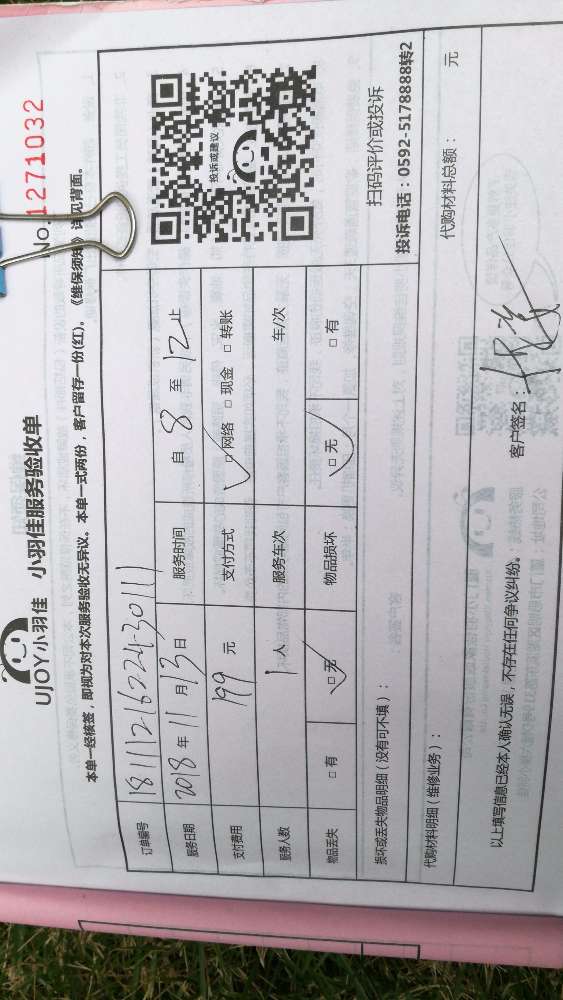 UJOY小羽佳 小羽佳服务验收单
No.1271032
本单一经核签，即视为对本次服务验收无异议。本单一式两份，客户留存一份(红)。《维保须知》详见背面。
订单编号 181112162243011
服务日期 2018 年 11 月 13 日 服务时间 自 8 至 12 止
支付费用 199 元 支付方式 □网络 □现金 □转账
服务人数 1 人 服务车次 车/次
物品丢失 □有 □无 物品损坏 □无 □有
投诉或建议
扫码评价或投诉
投诉电话：0592-5178888转2
损坏或丢失物品明细（没有可不填）：
代购材料明细（维修业务）： 代购材料总额： 元
以上填写信息已经本人确认无误，不存在任何争议纠纷。 客户签名：